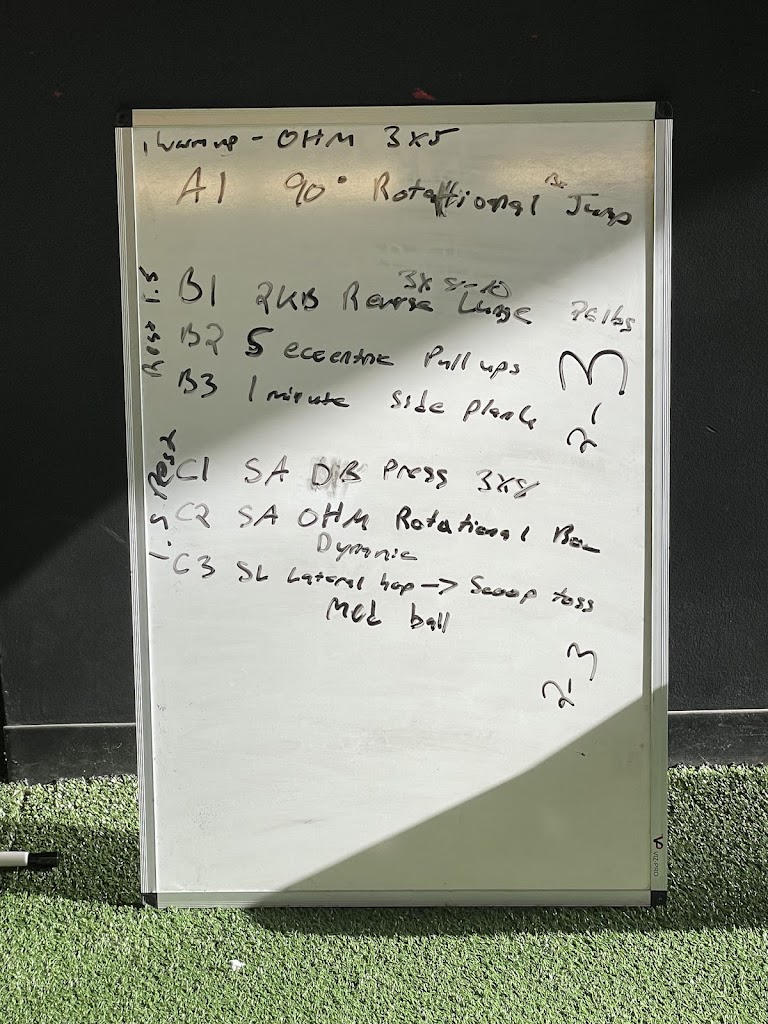 warmup - OHM 3x5
A1 90° Rotational Jump
Rest 1.5
3x 8-10
B1 2KB Reverse Lunge
B2 5 eccentric Pull ups
B3 1 minute side plank
2-3
1.5 Rest
C1 SA DB Press 3x8
C2 SA OHM Rotational
Dynamic
C3 SL Lateral hop -> Scoop toss
Med ball
2-3
VIZ-PRO